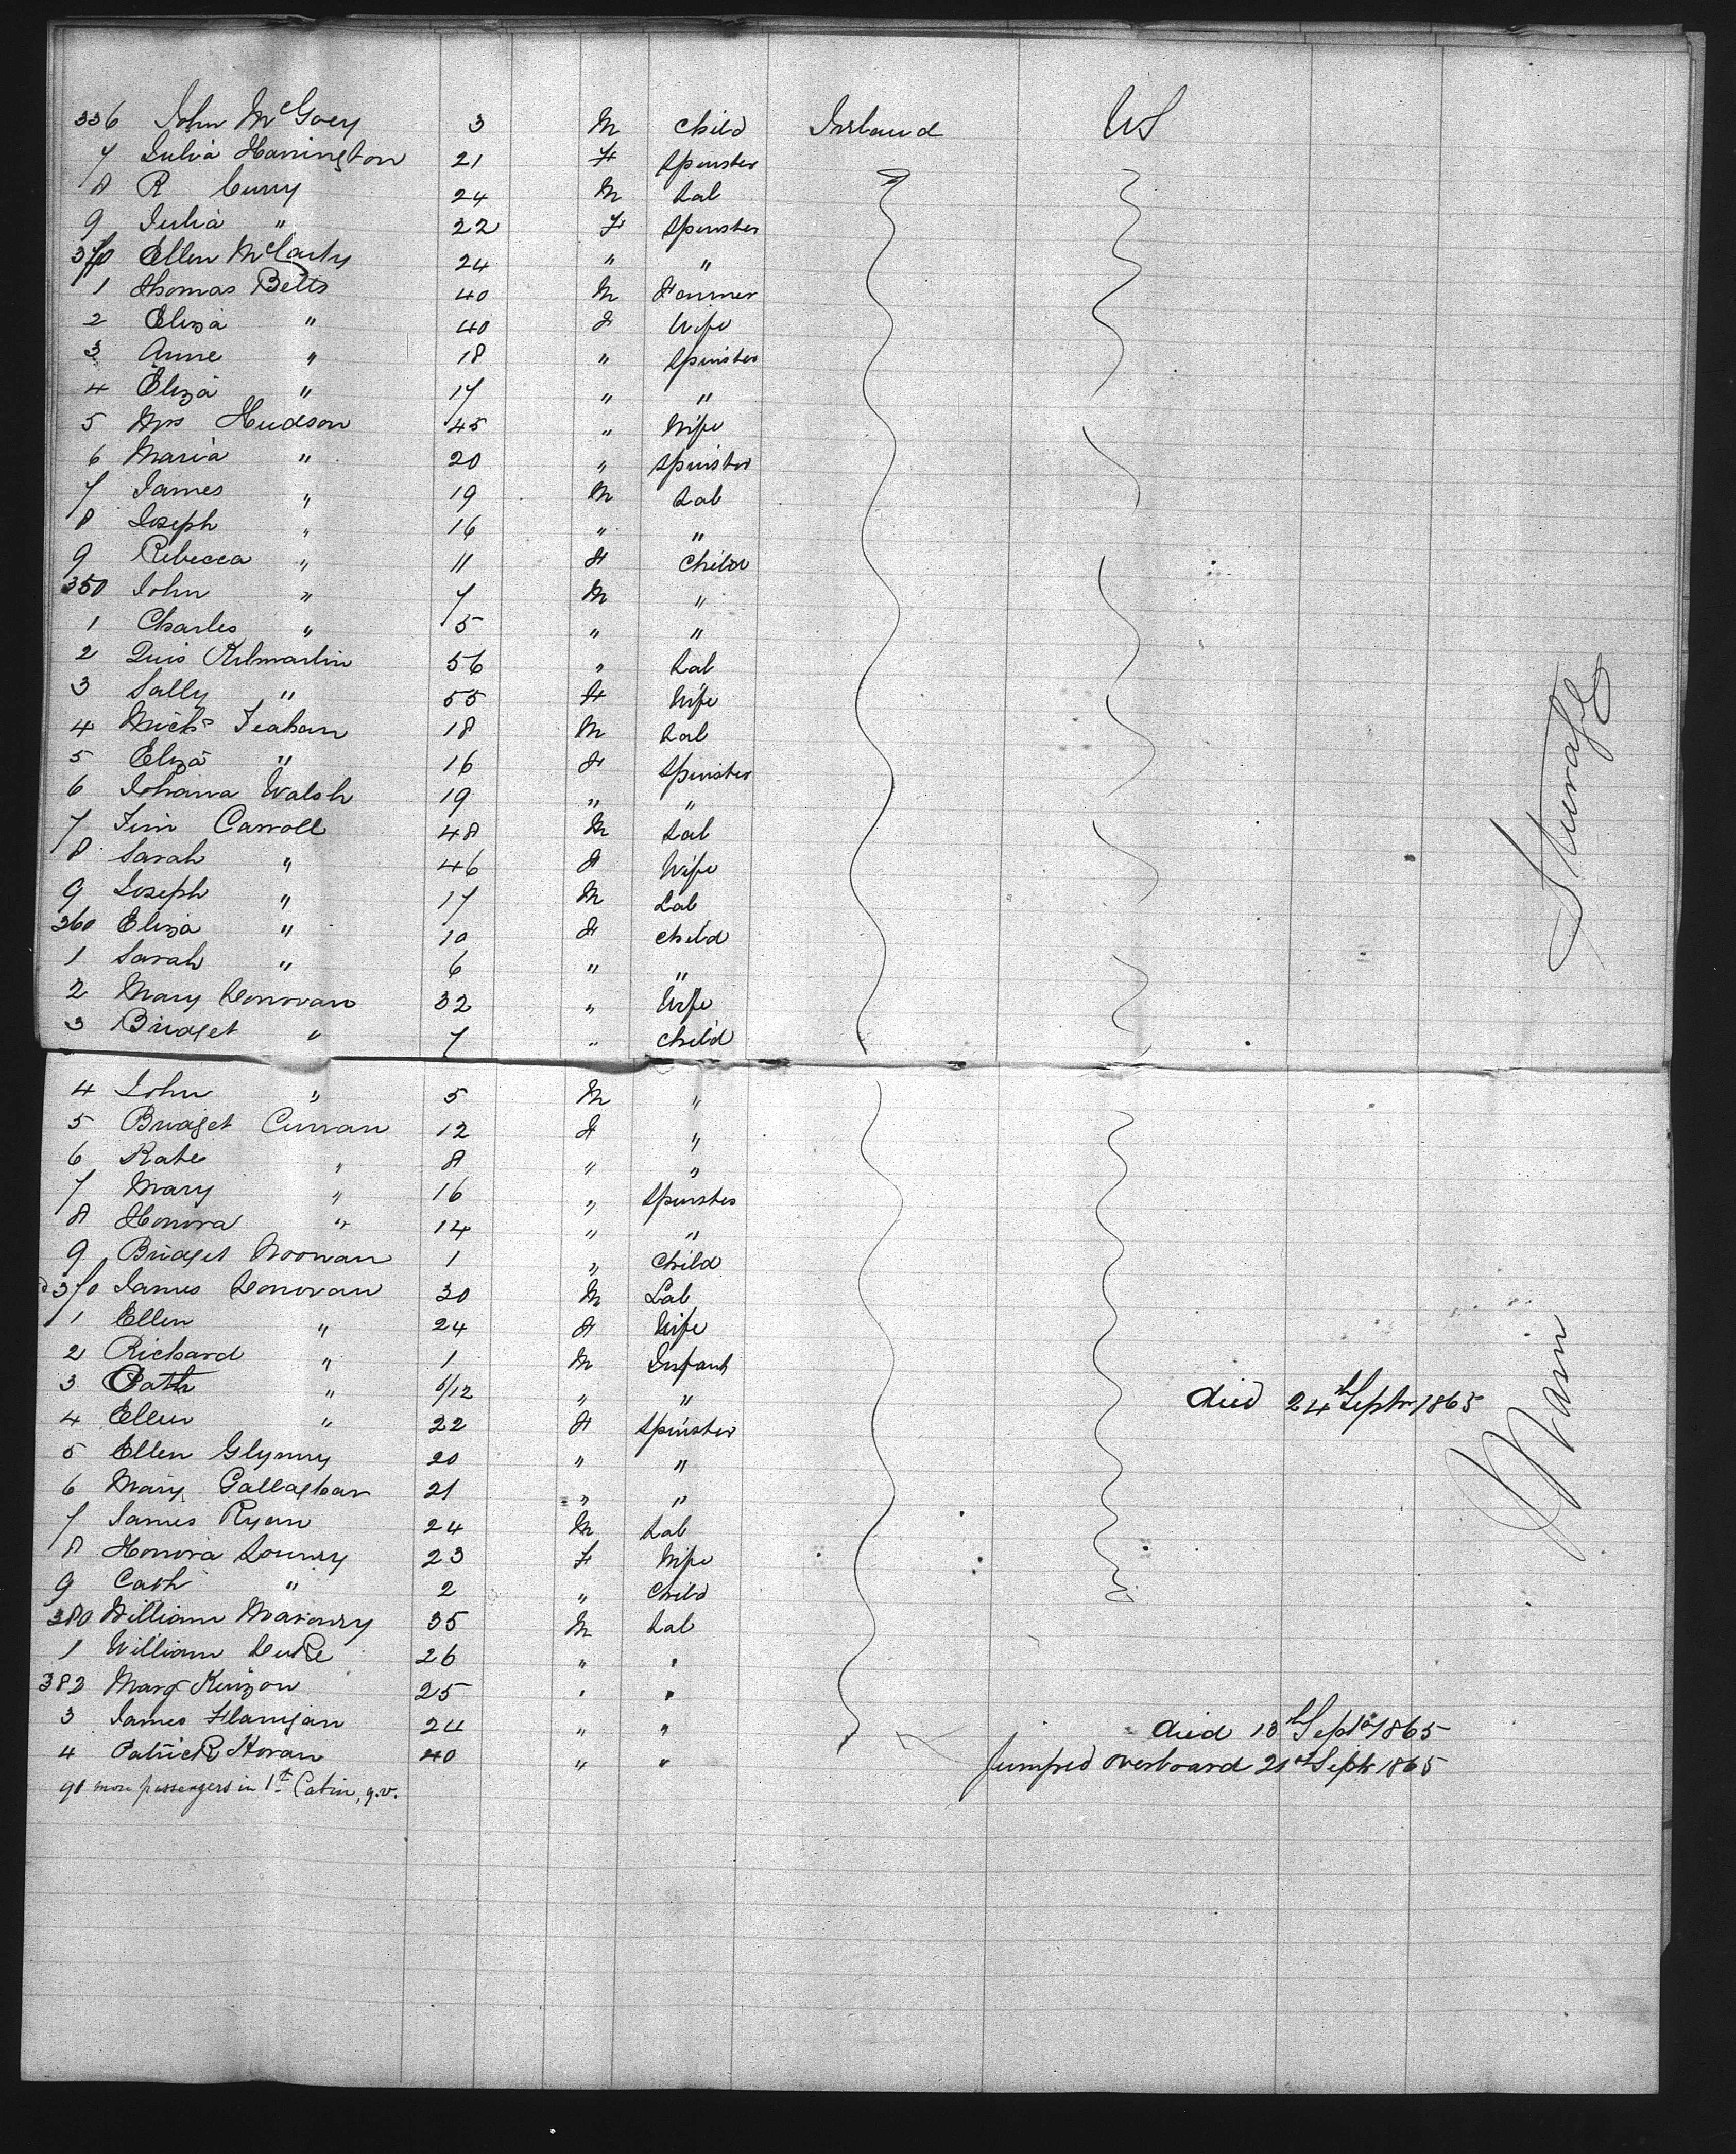 336 John McGoey 3 M Child Ireland US
7 Julia Harrington 21 F Spinster
8 R Curry 24 M Lab
9 Julia " 22 F Spinster
340 Ellen McCarty 24 " "
1 Thomas Betts 40 M Farmer
2 Eliza " 40 F Wife
3 Anne " 18 " Spinster
4 Eliza " 17 " "
5 Mrs Hudson 45 " Wife
6 Maria " 20 " Spinster
7 James " 19 M Lab
8 Joseph " 16 " "
9 Rebecca " 11 F Child
350 John " 7 M "
1 Charles " 5 " "
2 Kilmartin 56 " Lab
3 Sally " 55 F Wife
4 Michl Teahan 18 M Lab
5 Eliza " 16 F Spinster
6 Johana Walsh 19 " "
7 Tim Carroll 48 M Lab
8 Sarah " 46 F Wife
9 Joseph " 17 M Lab
360 Eliza " 10 F Child
1 Sarah " 6 " "
2 Mary Donovan 32 " Wife
3 Bridget " 7 " Child
4 John " 5 M "
5 Bridget Curran 12 F "
6 Kate " 8 " "
7 Mary " 16 " Spinster
8 Honora " 14 " "
9 Bridget Noonan 1 " Child
370 James Donovan 30 M Lab
1 Ellen " 24 F Wife
2 Richard " 1 M Infant
3 " 6/12 " " died 24th Septr 1865
4 Ellen " 22 F Spinster
5 Ellen Glynny 20 " "
6 Mary Gallaghar 21 " "
7 James Ryan 24 M Lab
8 Honora Lowry 23 F Wife
9 Cath " 2 " Child
380 William 35 M Lab
1 William Duke 26 " "
382 25 " "
3 James Flanigan 24 " " died 13th Septr 1865
4 Patrick Horan 40 " " Jumped overboard 21st Septr 1865
90 more passengers in 1st Cabin, q.v.
Steerage
Main